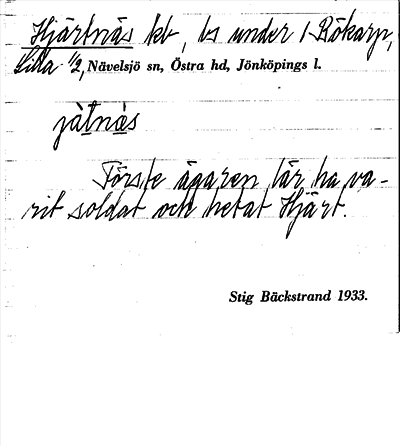 Hjärtnäs kb, ls under 1 Rökarp,
Lilla 1/2, Nävelsjö sn, Östra hd, Jönköpings l.
jàtnǟs
Förste ägaren lär ha va-
rit soldat och hetat Hjärt.
Stig Bäckstrand 1933.